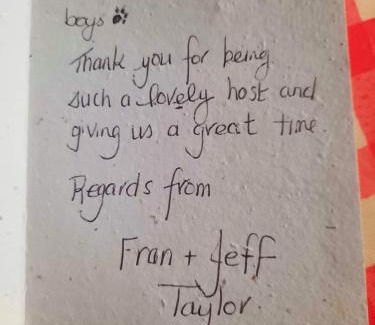 boys
Thank you for being
such a lovely host and
giving us a great time.
Regards from
Fran + Jeff
Taylor.